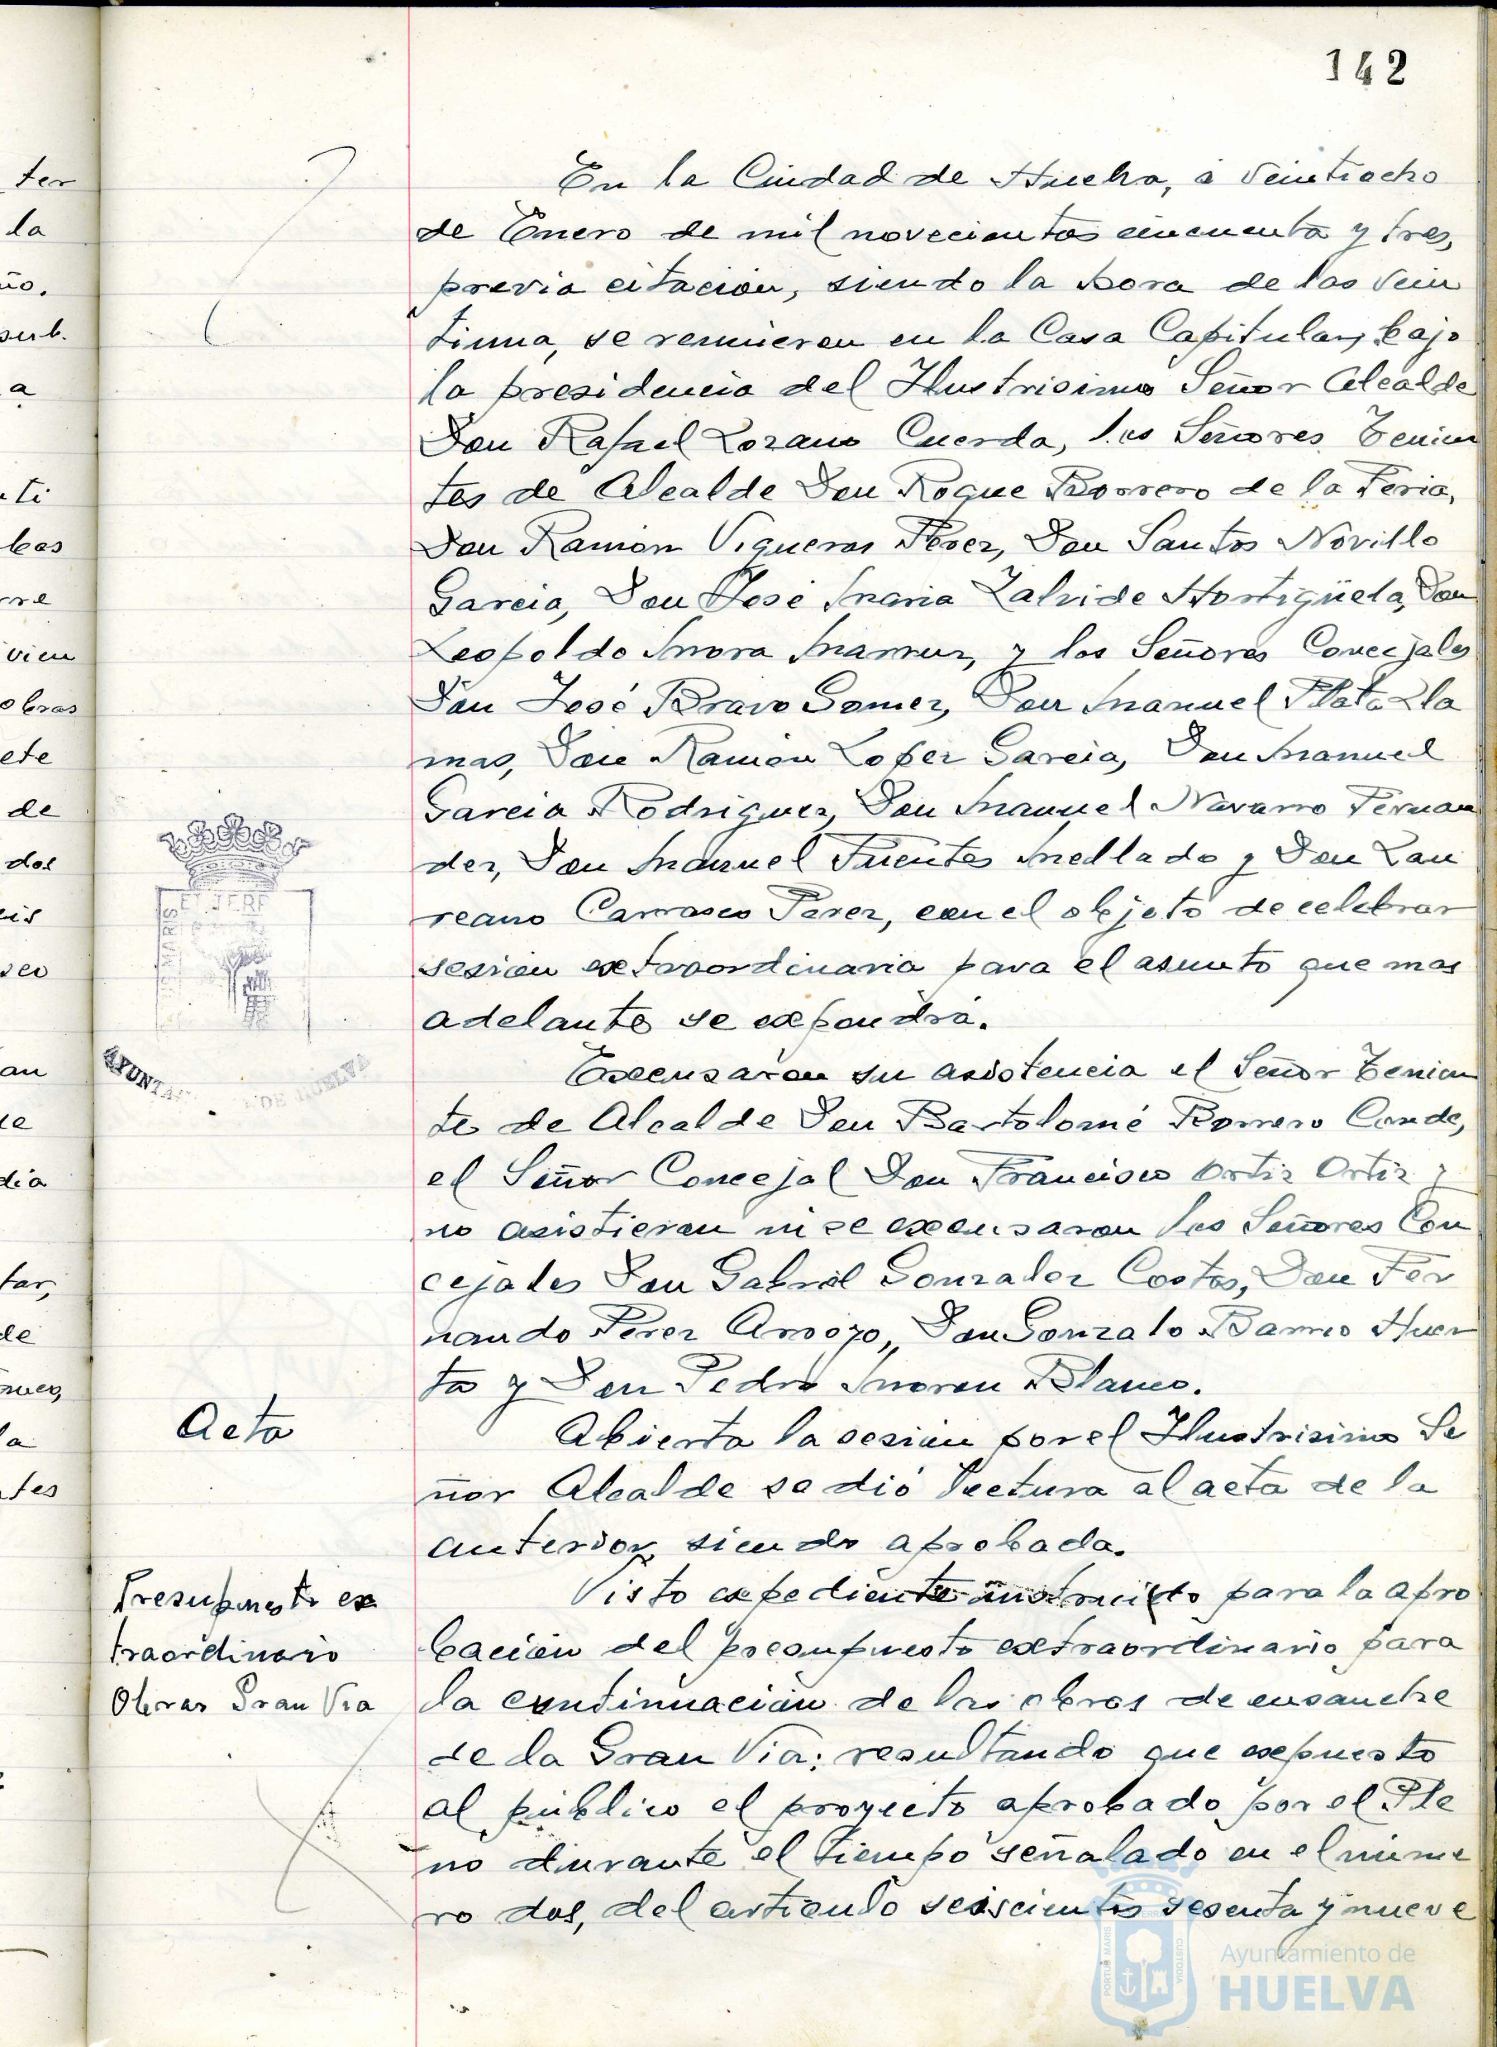 142
En la Ciudad de Huelva, á Veintiocho
de Enero de mil novecientos cincuenta y tres,
previa citación, siendo la hora de las Vein
tiuna, se reunieron en la Casa Capitular, bajo
la presidencia del Ilustrisimo Señor Alcalde
Don Rafael Lozano Cuerda, los Señores Tenien
tes de Alcalde Don Roque Borrero de la Feria,
Don Ramón Vigueras Perez, Don Santos Novillo
Garcia, Don José Maria Zalvide Hortigüela, Don
Leopoldo Mora y los Señores Concejales
Don José Bravo Gomez, Don Manuel Plata Lla
mas, Don Ramón Lopez Garcia, Don Manuel
Garcia Rodriguez, Don Manuel Navarro Fernan
dez, Don Manuel Fuentes Mellado y Don Lau
reano Carrasco Perez, con el objeto de celebrar
sesión extraordinaria para el asunto que mas
adelante se expondrá.
Excusaron su asistencia el Señor Tenien
te de Alcalde Don Bartolomé Borrero Conde,
el Señor Concejal Don Francisco Ortiz Ortiz y
no asistieron ni se excusaron los Señores Con
cejales Don Gabriel Gonzalez Costas, Don Fer
nando Perez Arroyo, Don Gonzalo Barrio Huer
ta y Don Pedro Moron Blanco.
Acta
Abierta la sesión por el Ilustrisimo Se
ñor Alcalde se dió lectura al acta de la
anterior, siendo aprobada.
Presupuesto ex
traordinario
Obras Gran Via
Visto expediente instruido para la apro
bación del presupuesto extraordinario para
la continuación de las obras de ensanche
de la Gran Via; resultando que expuesto
al público el proyecto aprobado por el Ple
no durante el tiempo señalado en el núme
ro dos, del articulo seiscientos sesenta y nueve
AYUNTA DE HUELVA
PORTUS MARIS
CUSTODIA
Ayuntamiento de
HUELVA